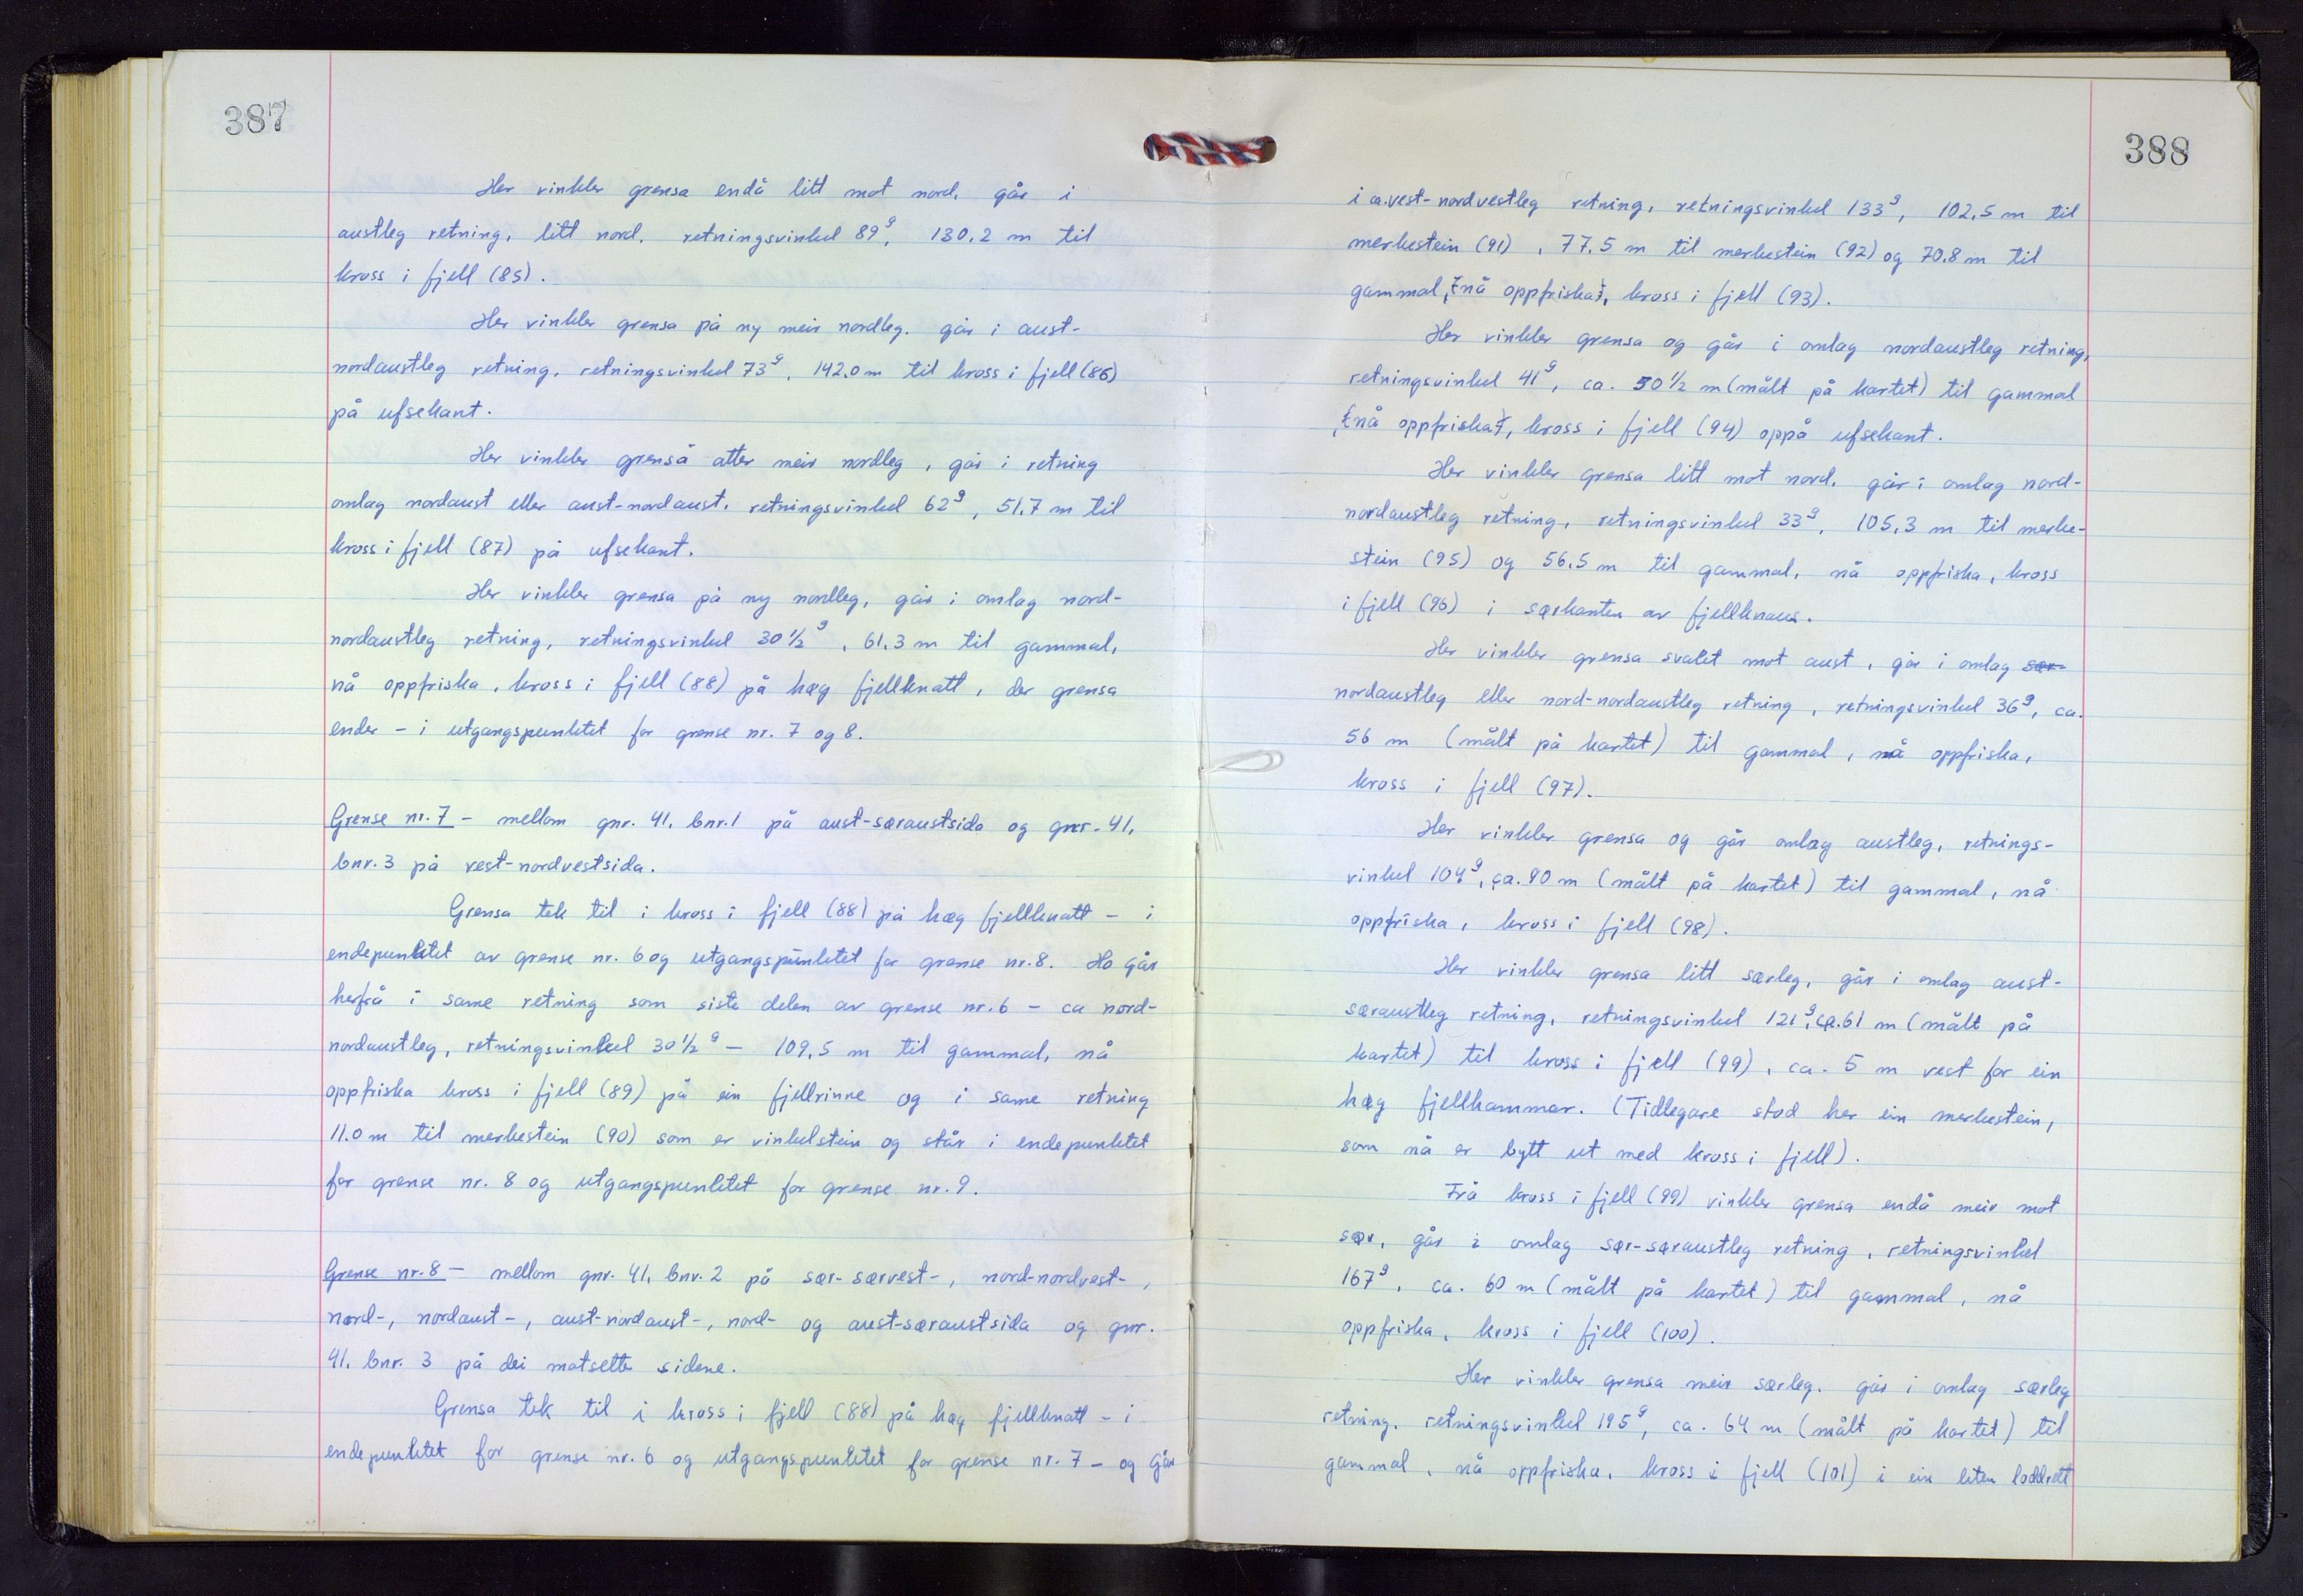 387
Her vinkler grensa endå litt mot nord, går i
austleg retning, litt nord, retningsvinkel 89g, 130,2 m til
kross i fjell (85).
Her vinkler grensa på ny meir nordleg, går i aust-
nordaustleg retning, retningsvinkel 73g, 142,0 m til kross i fjell (86)
på ufsekant.
Her vinkler grensa atter meir nordleg, går i retning
omlag nordaust eller aust-nordaust, retningsvinkel 62g, 51,7 m til
kross i fjell (87) på ufsekant.
Her vinkler grensa på ny nordleg, går i omlag nord-
nordaustleg retning, retningsvinkel 30 1/2 g, 61,3 m til gammal,
nå oppfriska, kross i fjell (88) på høg fjellknatt, der grensa
ender - i utgangspunktet for grense nr. 7 og 8.
Grense nr. 7 - mellom gnr. 41, bnr. 1 på aust-søraustsida og gnr. 41,
bnr. 3 på vest-nordvestsida.
Grensa tek til i kross i fjell (88) på høg fjellknatt - i
endepunktet av grense nr. 6 og utgangspunktet for grense nr. 8. Ho går
herfrå i same retning som siste delen av grense nr. 6 - ca nord-
nordaustleg, retningsvinkel 30 1/2 g - 109,5 m til gammal, nå
oppfriska kross i fjell (89) på ein fjellrinne og i same retning
11.0 m til merkestein (90) som er vinkelstein og står i endepunktet
for grense nr. 8 og utgangspunktet for grense nr. 9.
Grense nr. 8 - mellom gnr. 41, bnr. 2 på sør-sørvest-, nord-nordvest-,
nord-, nordaust-, aust-nordaust-, nord- og aust-søraustsida og gnr.
41, bnr. 3 på dei motsette sidene.
Grensa tek til i kross i fjell (88) på høg fjellknatt - i
endepunktet for grense nr. 6 og utgangspunktet for grense nr. 7 - og går
388
i ca. vest-nordvestleg retning, retningsvinkel 133g, 102,5 m til
merkestein (91), 77,5 m til merkestein (92) og 70,8 m til
gammal, nå oppfriska, kross i fjell (93).
Her vinkler grensa og går i omlag nordaustleg retning,
retningsvinkel 41g, ca. 50 1/2 m (målt på kartet) til gammal
, nå oppfriska, kross i fjell (94) oppå ufsekant.
Her vinkler grensa litt mot nord, går i omlag nord-
nordaustleg retning, retningsvinkel 33g, 105,3 m til merke-
stein (95) og 56,5 m til gammal, nå oppfriska, kross
i fjell (96) i sørkanten av fjellknaus.
Her vinkler grensa svakt mot aust, går i omlag sør-
nordaustleg eller nord-nordaustleg retning, retningsvinkel 36g, ca.
56 m (målt på kartet) til gammal, nå oppfriska,
kross i fjell (97).
Her vinkler grensa og går omlag austleg, retnings-
vinkel 104g, ca. 90 m (målt på kartet) til gammal, nå
oppfriska, kross i fjell (98).
Her vinkler grensa litt sørleg, går i omlag aust-
søraustleg retning, retningsvinkel 121g, ca. 61 m (målt på
kartet) til kross i fjell (99), ca. 5 m vest for ein
høg fjellhammar. (Tidlegare stod her ein merkestein,
som nå er bytt ut med kross i fjell).
Frå kross i fjell (99) vinkler grensa endå meir mot
sør, går i omlag sør-søraustleg retning, retningsvinkel
167g, ca. 60 m (målt på kartet) til gammal, nå
oppfriska, kross i fjell (100).
Her vinkler grensa meir sørleg, går i omlag sørleg
retning, retningsvinkel 195g, ca. 64 m (målt på kartet) til
gammal, nå oppfriska, kross i fjell (101) i ein liten loddrett